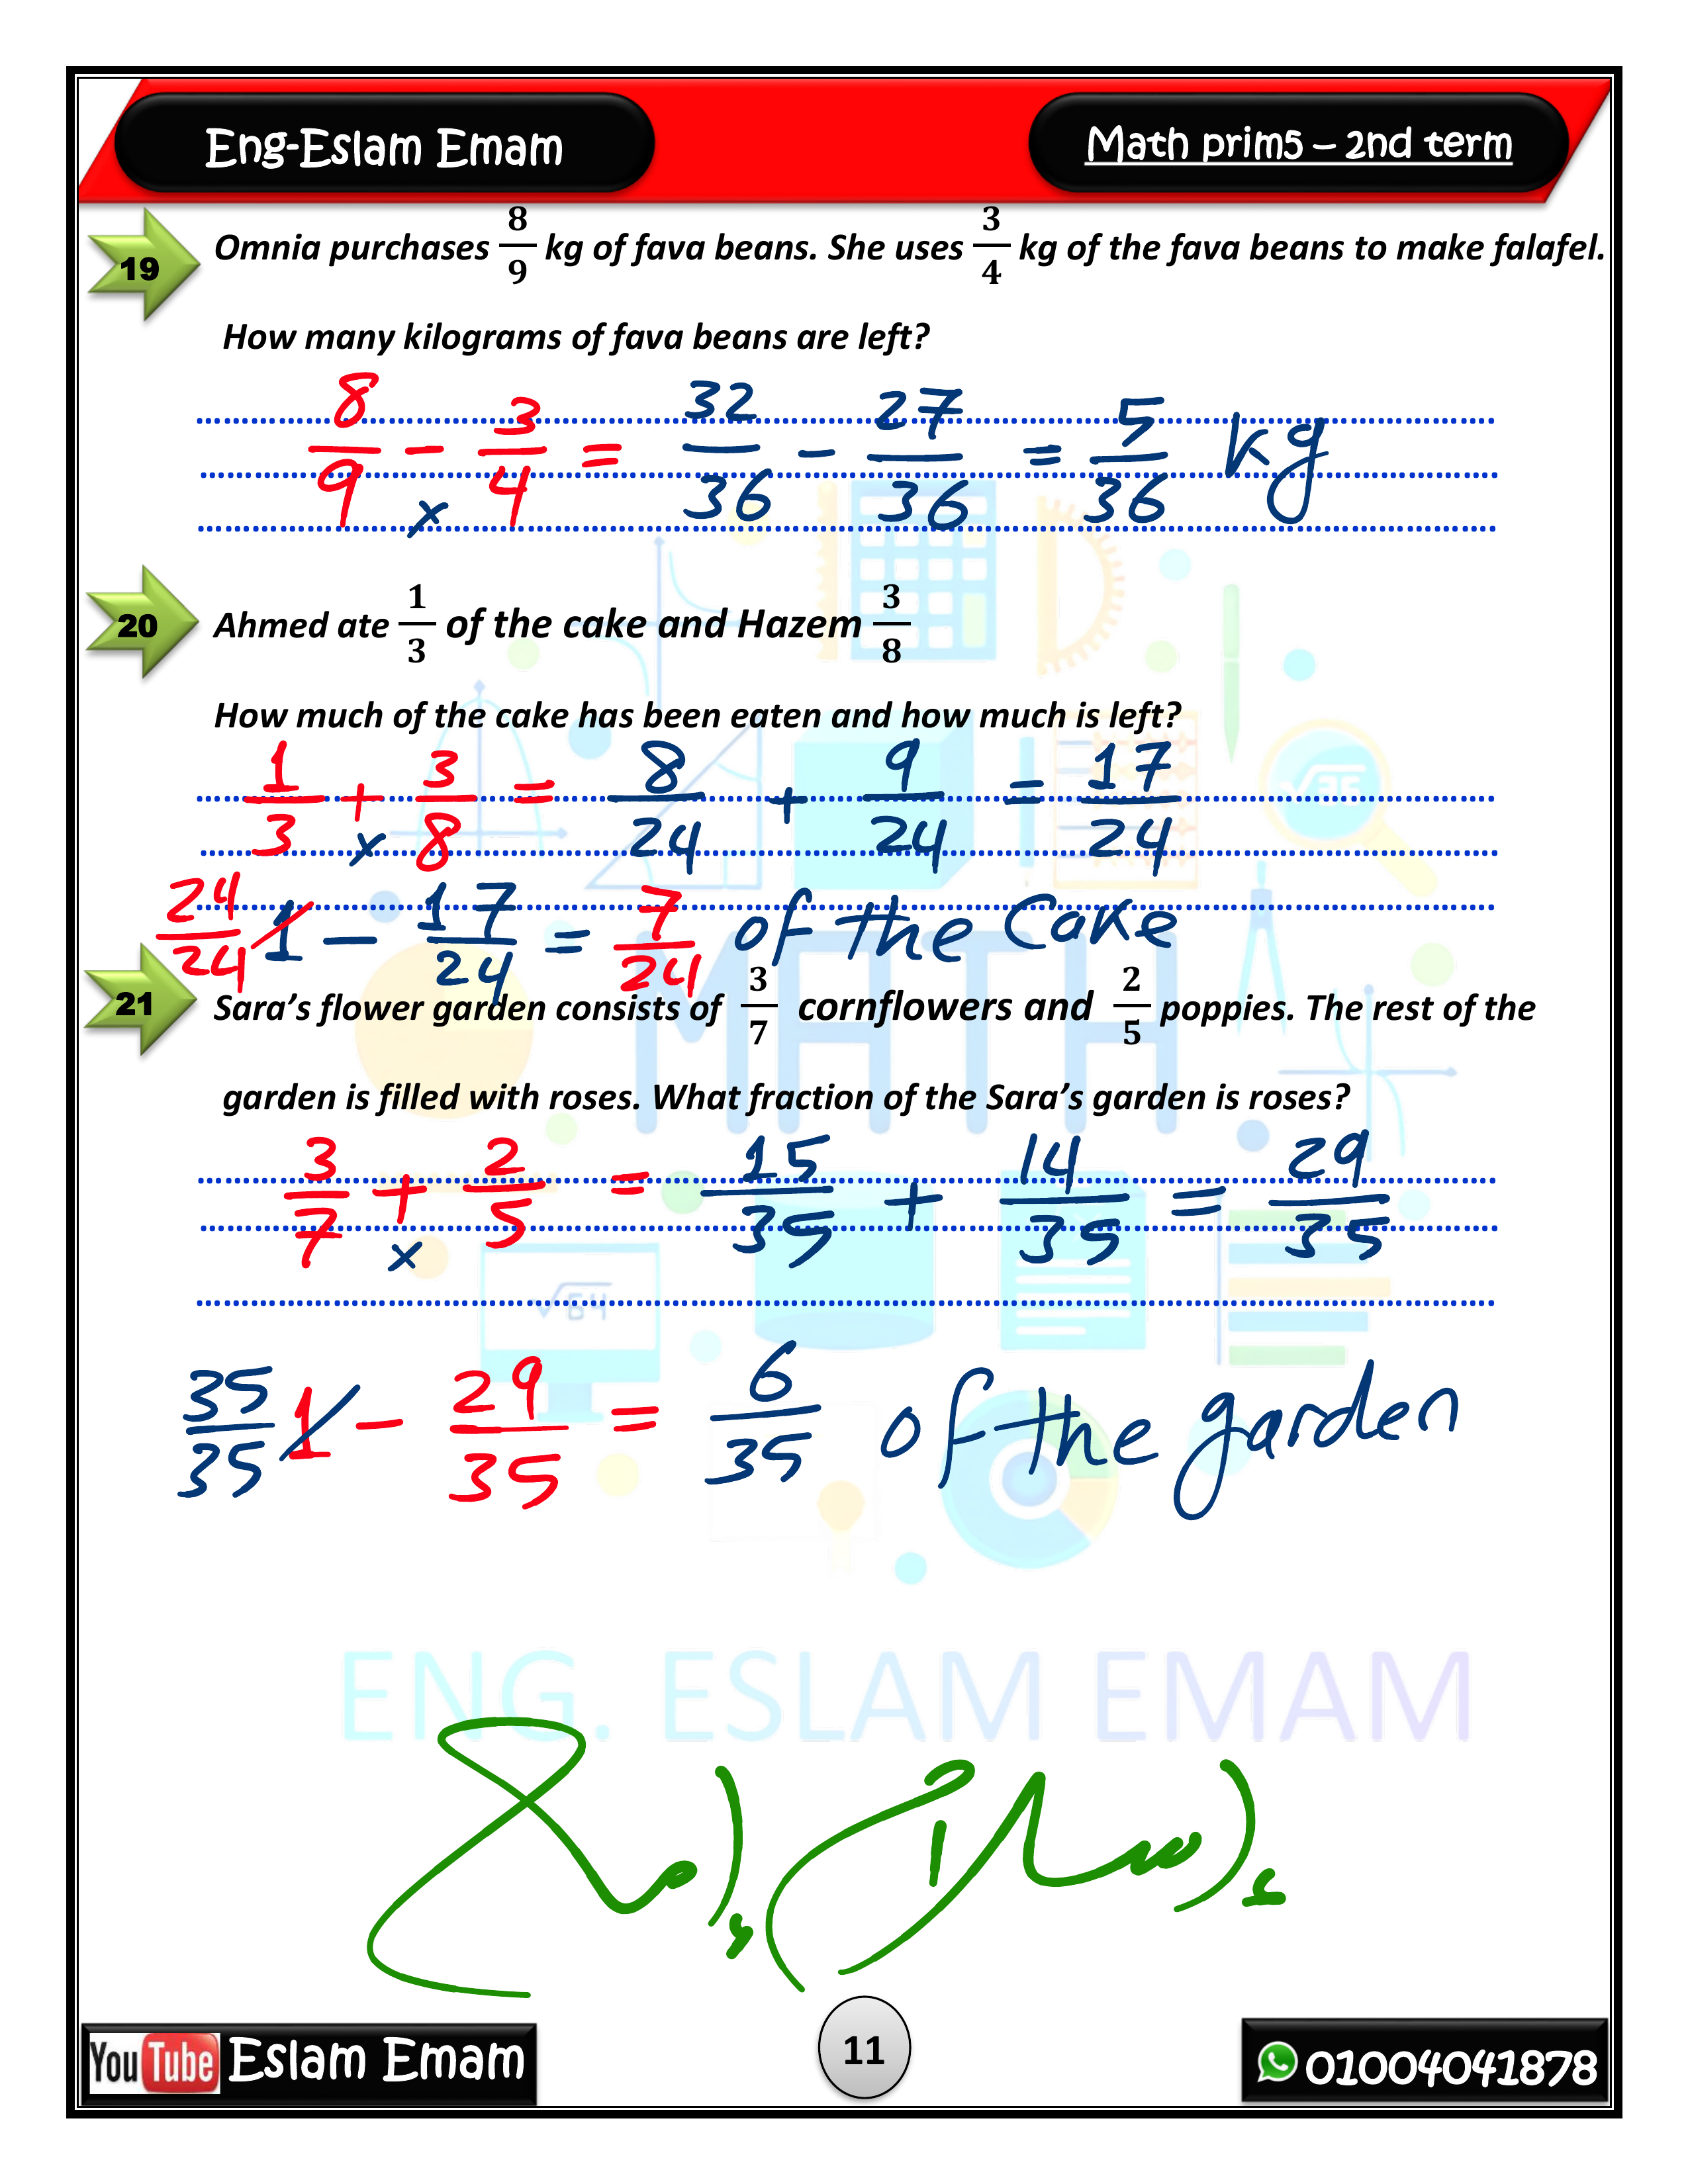 Eng-Eslam Emam
Math prim5 – 2nd term
19 Omnia purchases 8/9 kg of fava beans. She uses 3/4 kg of the fava beans to make falafel.
How many kilograms of fava beans are left?
8/9 - 3/4 = 32/36 - 27/36 = 5/36 kg
x
20 Ahmed ate 1/3 of the cake and Hazem 3/8
How much of the cake has been eaten and how much is left?
1/3 + 3/8 = 8/24 + 9/24 = 17/24
x
24/24 1 - 17/24 = 7/24 of the Cake
21 Sara’s flower garden consists of 3/7 cornflowers and 2/5 poppies. The rest of the
garden is filled with roses. What fraction of the Sara’s garden is roses?
3/7 + 2/5 = 15/35 + 14/35 = 29/35
x
35/35 1 - 29/35 = 6/35 of the garden
MATH
√64
ENG. ESLAM EMAM
YouTube Eslam Emam
11
01004041878